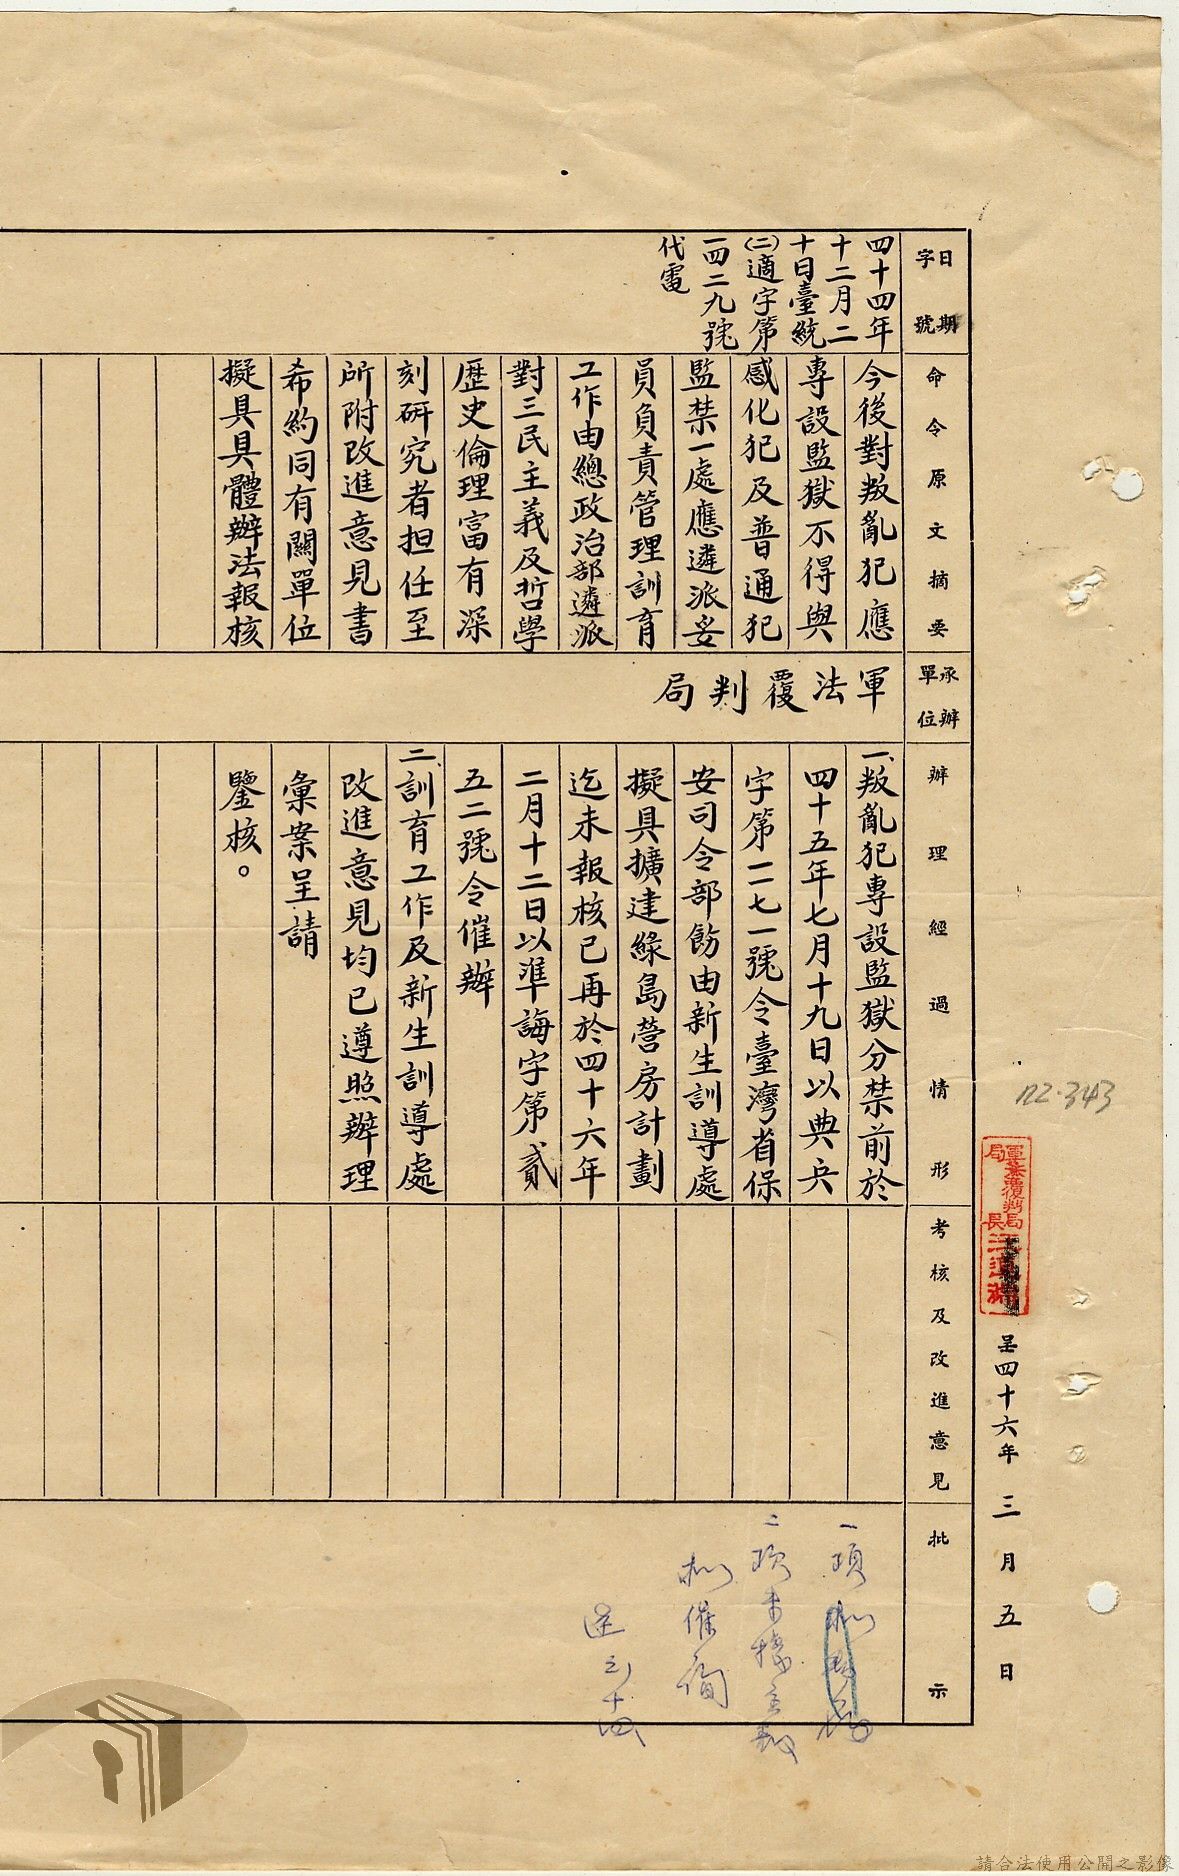 軍法覆判局
局長
呈四十六年三月五日
122.343
日期
字號
四十四年
十二月二
十日臺統
(二)適字第
一四二九號
代電
命令原文摘要
今後對叛亂犯應
專設監獄不得與
感化犯及普通犯
監禁一處應遴派妥
員負責管理訓育
工作由總政治部遴派
對三民主義及哲學
歷史倫理富有深
刻研究者担任至
所附改進意見書
希約同有關單位
擬具具體辦法報核
承辦
單位
軍法覆判局
辦理經過情形
一、叛亂犯專設監獄分禁前於
四十五年七月十九日以典兵
字第一二七一號令臺灣省保
安司令部飭由新生訓導處
擬具擴建綠島營房計劃
迄未報核已再於四十六年
二月十二日以準誨字第貳
五二號令催辦
二、訓育工作及新生訓導處
改進意見均已遵照辦理
彙案呈請
鑒核。
考核及改進意見
批示
一項
二項
催詢
請合法使用公開之影像